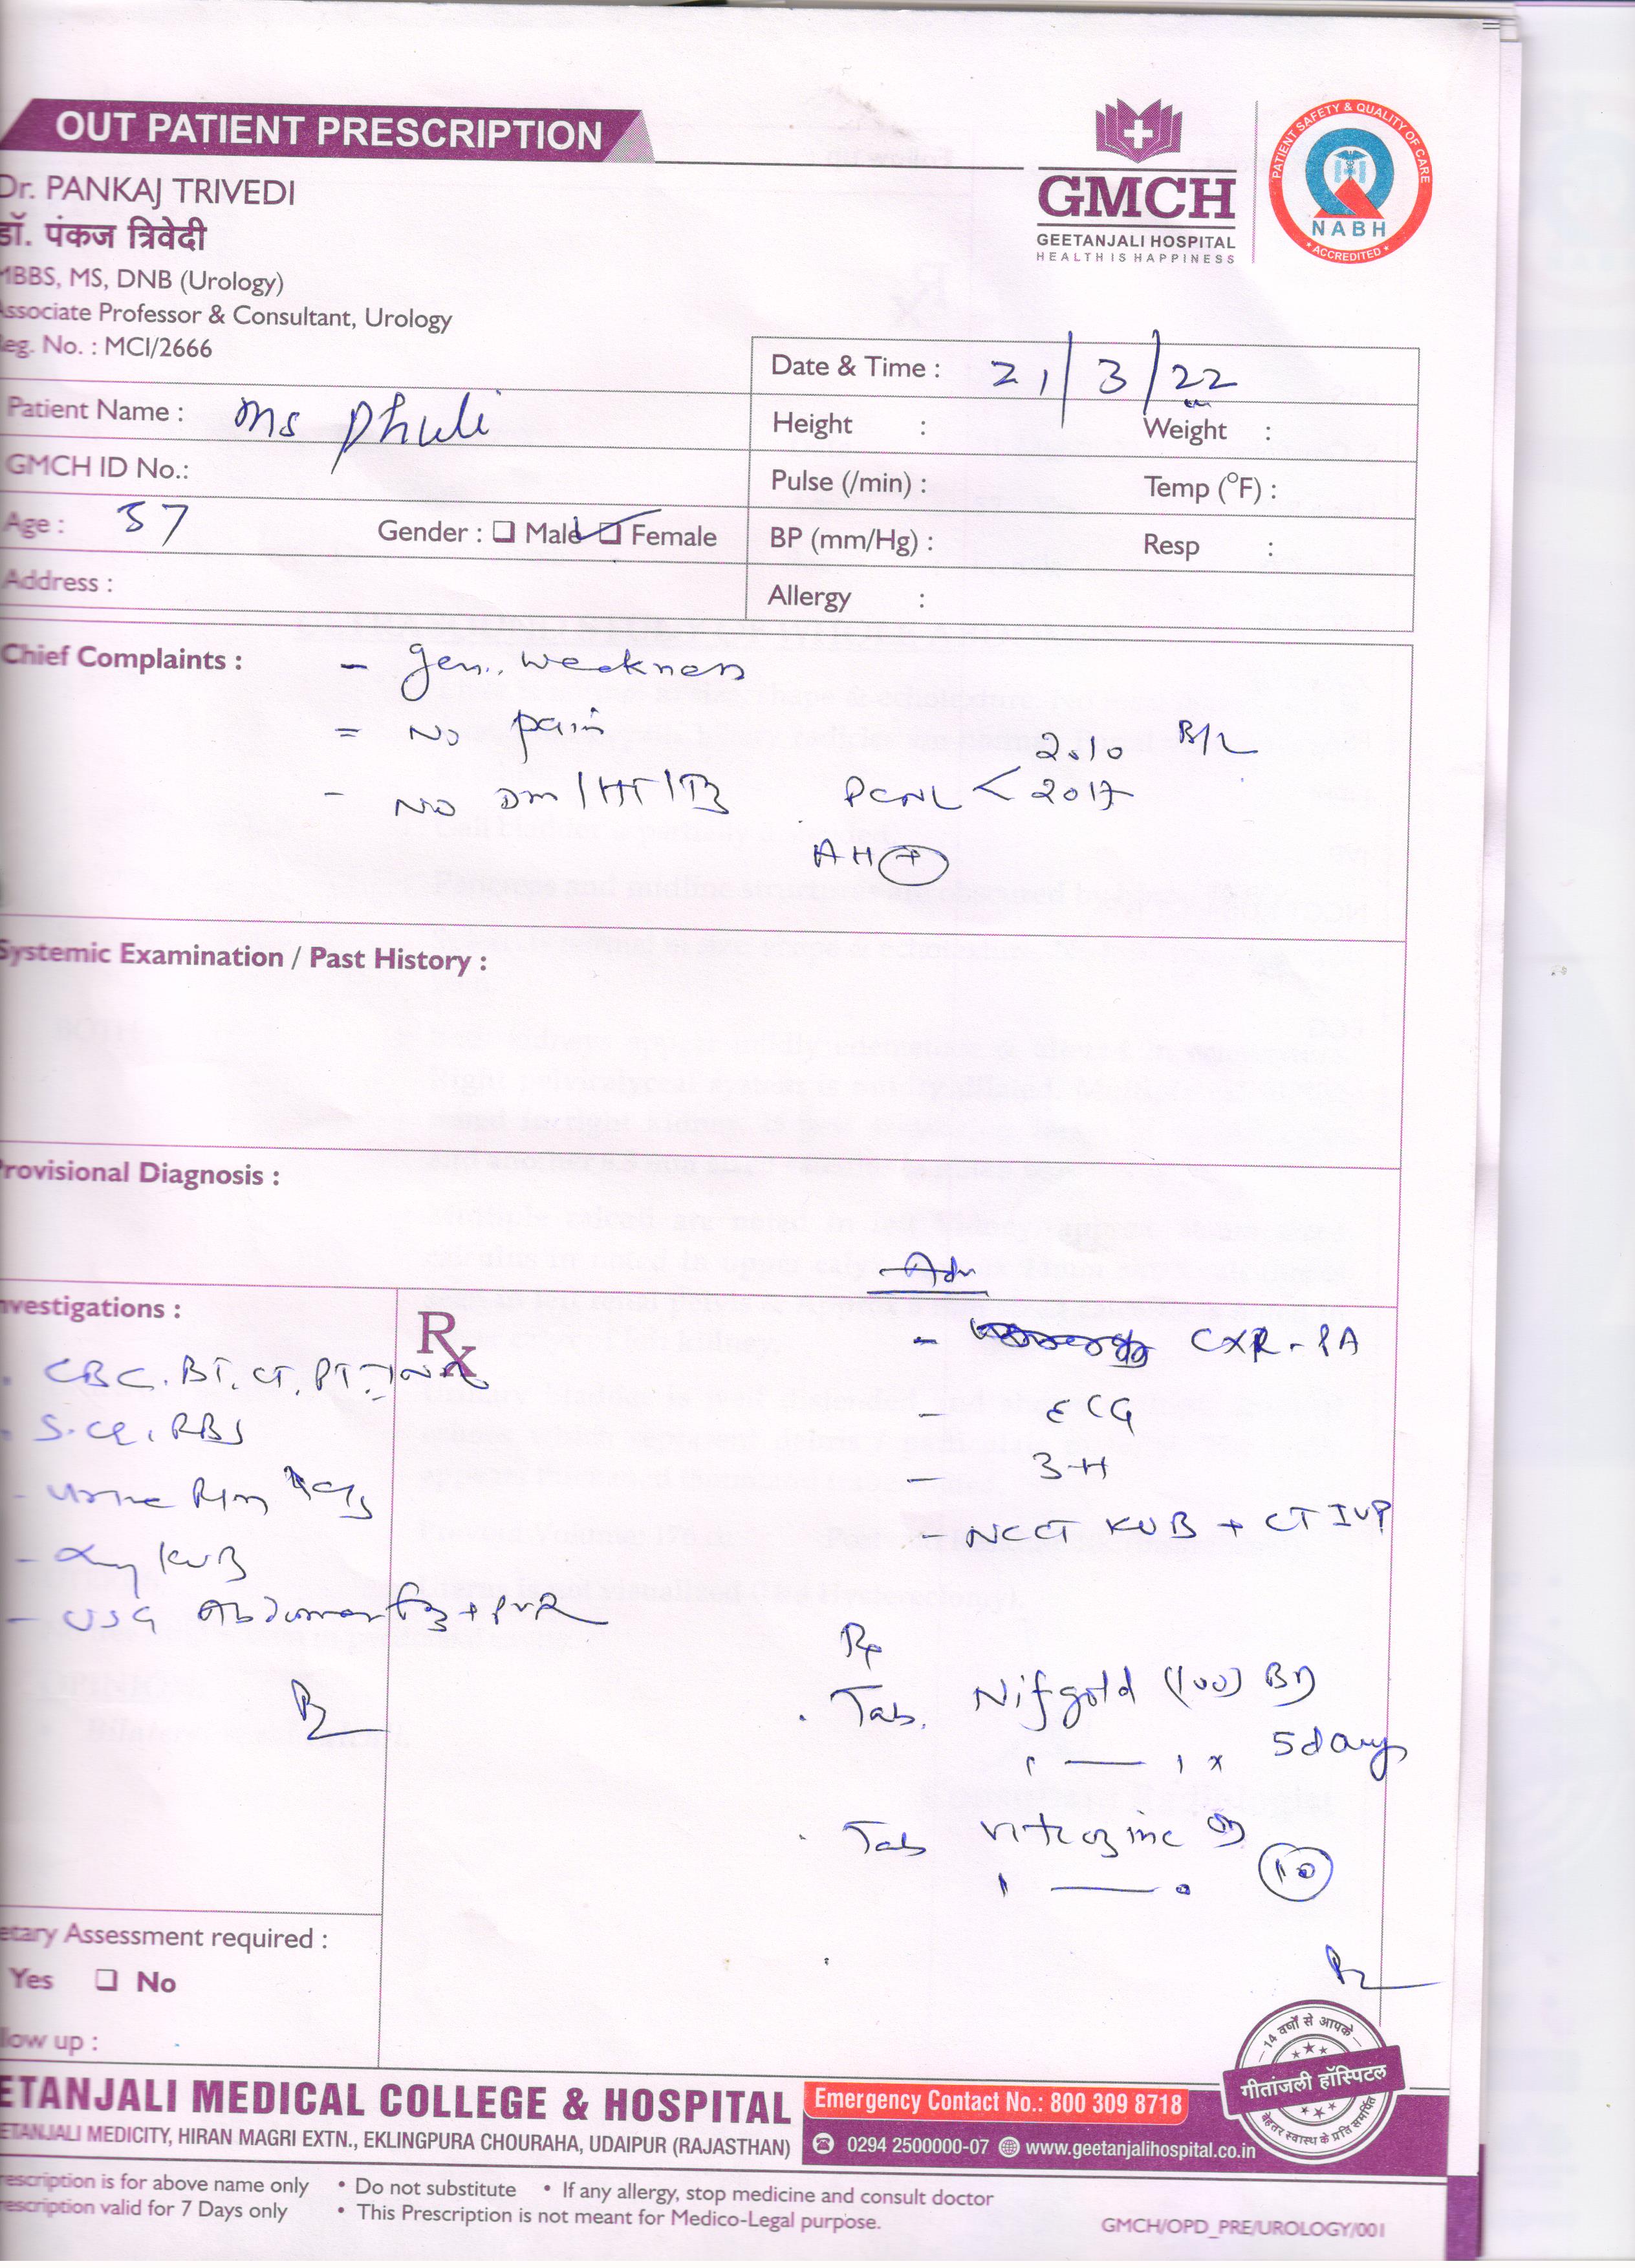 OUT PATIENT PRESCRIPTION
GMCH
GEETANJALI HOSPITAL
HEALTH IS HAPPINESS
PATIENT SAFETY & QUALITY OF CARE
NABH
ACCREDITED
Dr. PANKAJ TRIVEDI
डॉ. पंकज त्रिवेदी
MBBS, MS, DNB (Urology)
Associate Professor & Consultant, Urology
Reg. No. : MCI/2666
Date & Time : 21/3/22
Patient Name : Ms Dhuli
Height : Weight :
GMCH ID No.:
Pulse (/min) : Temp (°F) :
Age : 57 Gender : ❑ Male ❑ Female
BP (mm/Hg) : Resp :
Address :
Allergy :
Chief Complaints : - Gen. weakness
= No pain
2010 B/L
- No DM/HT/TB PCNL < 2017
AH +
Systemic Examination / Past History :
Provisional Diagnosis :
Adv
nvestigations :
Rx
- CXR-PA
. CBC, BT, CT, PT-INR
- ECG
. S.Cr, RBS
- 3-H
- Urine R/M
- NCCT KUB + CT IVP
- Xray KUB
- USG Abdomen + PVR
Rx
. Tab. Nifgold (100) BD
1 — 1 x 5 days
. Tab Vitcozinc OD
1 — 0 10
etary Assessment required :
Yes ❑ No
llow up :
14 वर्षों से आपके
गीतांजली हॉस्पिटल
बेहतर स्वास्थ के प्रति समर्पित
ETANJALI MEDICAL COLLEGE & HOSPITAL
Emergency Contact No.: 800 309 8718
ETANJALI MEDICITY, HIRAN MAGRI EXTN., EKLINGPURA CHOURAHA, UDAIPUR (RAJASTHAN)
0294 2500000-07 www.geetanjalihospital.co.in
rescription is for above name only • Do not substitute • If any allergy, stop medicine and consult doctor
rescription valid for 7 Days only • This Prescription is not meant for Medico-Legal purpose.
GMCH/OPD_PRE/UROLOGY/001